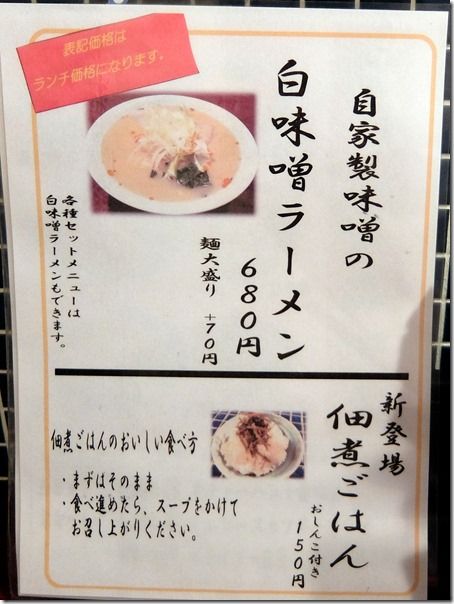 表記価格は
ランチ価格になります。
自家製味噌の
白味噌ラーメン
680円
麺大盛り +70円
各種セットメニューは
白味噌ラーメンもできます。
新登場
佃煮ごはん
おしんこ付き
150円
佃煮ごはんのおいしい食べ方
・まずはそのまま
・食べ進めたら、スープをかけて
お召し上がりください。